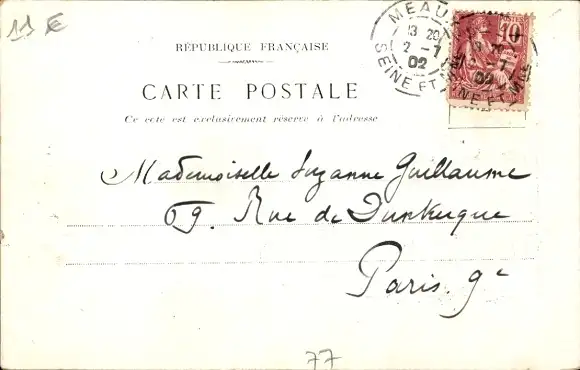 11 €
MEAUX
13 20
2 -7
02
SEINE ET MNE
POSTES
10
RÉPUBLIQUE FRANÇAISE
CARTE POSTALE
Ce côté est exclusivement réservé à l'adresse
Mademoiselle Suzanne Guillaume
69. Rue de Dunkerque
Paris. 9e
77